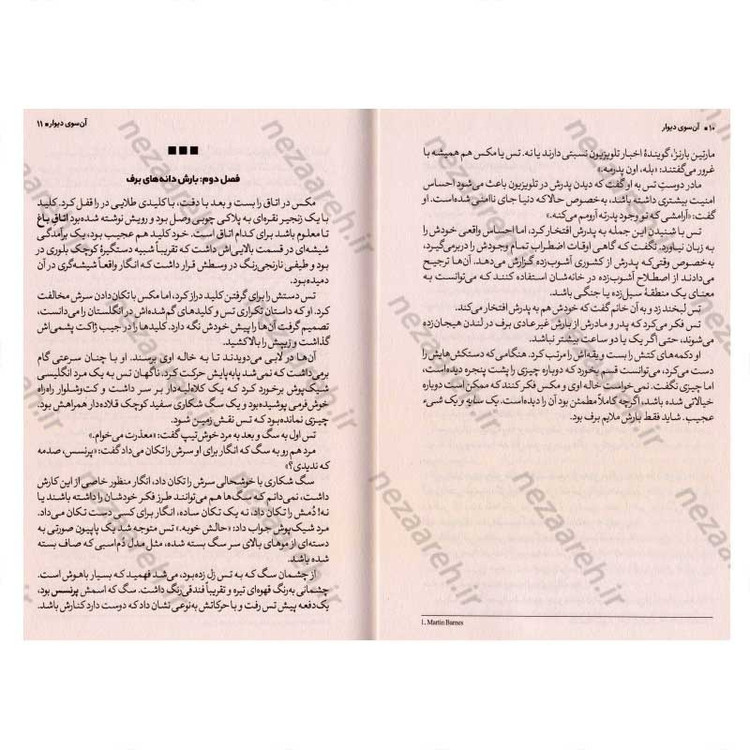 ۱۰ ■ آن‌سوی دیوار
مارتین بارنز¹، گویندهٔ اخبار تلویزیون نسبتی دارند یا نه. تس یا مکس هم همیشه با
غرور می‌گفتند: «بله، اون پدرمه.»
مادر دوستِ تس به او گفت که دیدن پدرش در تلویزیون باعث می‌شود احساس
امنیت بیشتری داشته باشد، به‌خصوص حالا که دنیا جای ناامنی شده است. او
گفت: «آرامشی که تو وجود پدرته آرومم می‌کنه.»
تس با شنیدن این جمله به پدرش افتخار کرد، اما احساس واقعی خودش را
به زبان نیاورد. نگفت که گاهی اوقات اضطراب تمام وجودش را دربرمی‌گیرد،
به‌خصوص وقتی‌که پدرش از کشوری آشوب‌زده گزارش می‌دهد. آن‌ها ترجیح
می‌دادند از اصطلاح آشوب‌زده در خانه‌شان استفاده کنند که می‌توانست به
معنای یک منطقهٔ سیل‌زده یا جنگی باشد.
تس لبخند زد و به آن خانم گفت که خودش هم به پدرش افتخار می‌کند.
تس فکر می‌کرد که پدر و مادرش از بارش غیرعادی برف در لندن هیجان‌زده
می‌شوند، حتی اگر یک یا دو ساعت بیشتر نباشد.
او دکمه‌های کتش را بست و یقه‌اش را مرتب کرد. هنگامی که دستکش‌هایش را
دست می‌کرد، می‌توانست قسم بخورد که دوباره چیزی را پشت پنجره دیده است،
اما چیزی نگفت. نمی‌خواست خاله اوی و مکس فکر کنند که ممکن است دوباره
خیالاتی شده باشد، اگرچه کاملاً مطمئن بود آن را دیده‌است. یک سایه و یک شیء
عجیب. شاید فقط بارش ملایم برف بود.
1. Martin Barnes
آن‌سوی دیوار ■ ۱۱
■ ■ ■
فصل دوم: بارش دانه‌های برف
مکس در اتاق را بست و بعد با دقت، با کلیدی طلایی در را قفل کرد. کلید
با یک زنجیر نقره‌ای به پلاکی چوبی وصل بود و رویش نوشته شده‌بود اتاق باغ
تا معلوم باشد برای کدام اتاق است. خود کلید هم عجیب بود، یک برآمدگی
شیشه‌ای در قسمت بالایی‌اش داشت که تقریباً شبیه دستگیرهٔ کوچک بلوری در
بود و طیفی نارنجی‌رنگ در وسطش قرار داشت که انگار واقعاً شیشه‌گری در آن
دمیده‌بود.
تس دستش را برای گرفتن کلید دراز کرد، اما مکس با تکان‌دادن سرش مخالفت
کرد. او که داستان تکراری تس و کلیدهای گم‌شده‌اش در انگلستان را می‌دانست،
تصمیم گرفت آن‌ها را پیش خودش نگه دارد. کلیدها را در جیب ژاکت پشمی‌اش
گذاشت و زیپش را بالا کشید.
آن‌ها در لابی می‌دویدند تا به خاله اوی برسند. او با چنان سرعتی گام
برمی داشت که نمی‌شد پابه‌پایش حرکت کرد. ناگهان تس به یک مرد انگلیسی
شیک‌پوش برخورد کرد که یک کلاه‌لبه‌دار بر سر داشت و کت‌وشلوار راه‌راه
خوش‌فرمی پوشیده‌بود و یک سگ شکاری سفید کوچک قلاده‌دار همراهش بود.
چیزی نمانده‌بود که تس نقش زمین شود.
تس اول به سگ و بعد به مرد خوش‌تیپ گفت: «معذرت می‌خوام.»
مرد هم رو به سگ که انگار برای او سرش را تکان می‌داد گفت: «پرنسس، صدمه
که ندیدی؟»
سگ شکاری با خوشحالی سرش را تکان داد، انگار منظور خاصی از این کارش
داشت، نمی‌دانم که سگ‌ها هم می‌توانند طرز فکر خودشان را داشته باشند یا
نه! دُمش را تکان داد، نه یک تکان ساده، انگار برای کسی دست تکان می‌داد.
مرد شیک‌پوش جواب داد: «حالش خوبه.» تس متوجه شد یک پاپیون صورتی به
دسته‌ای از موهای بالای سر سگ بسته شده، مثل مدل دُم‌اسبی که صاف بسته
شده باشد.
از چشمان سگ که به تس زل زده‌بود، می‌شد فهمید که بسیار باهوش است.
چشمانی به‌رنگ قهوه‌ای تیره و تقریباً فندقی‌رنگ داشت. سگ که اسمش پرنسس بود،
یک‌دفعه پیش تس رفت و با حرکاتش به‌نوعی نشان داد که دوست دارد کنارش باشد.
nezaareh.ir